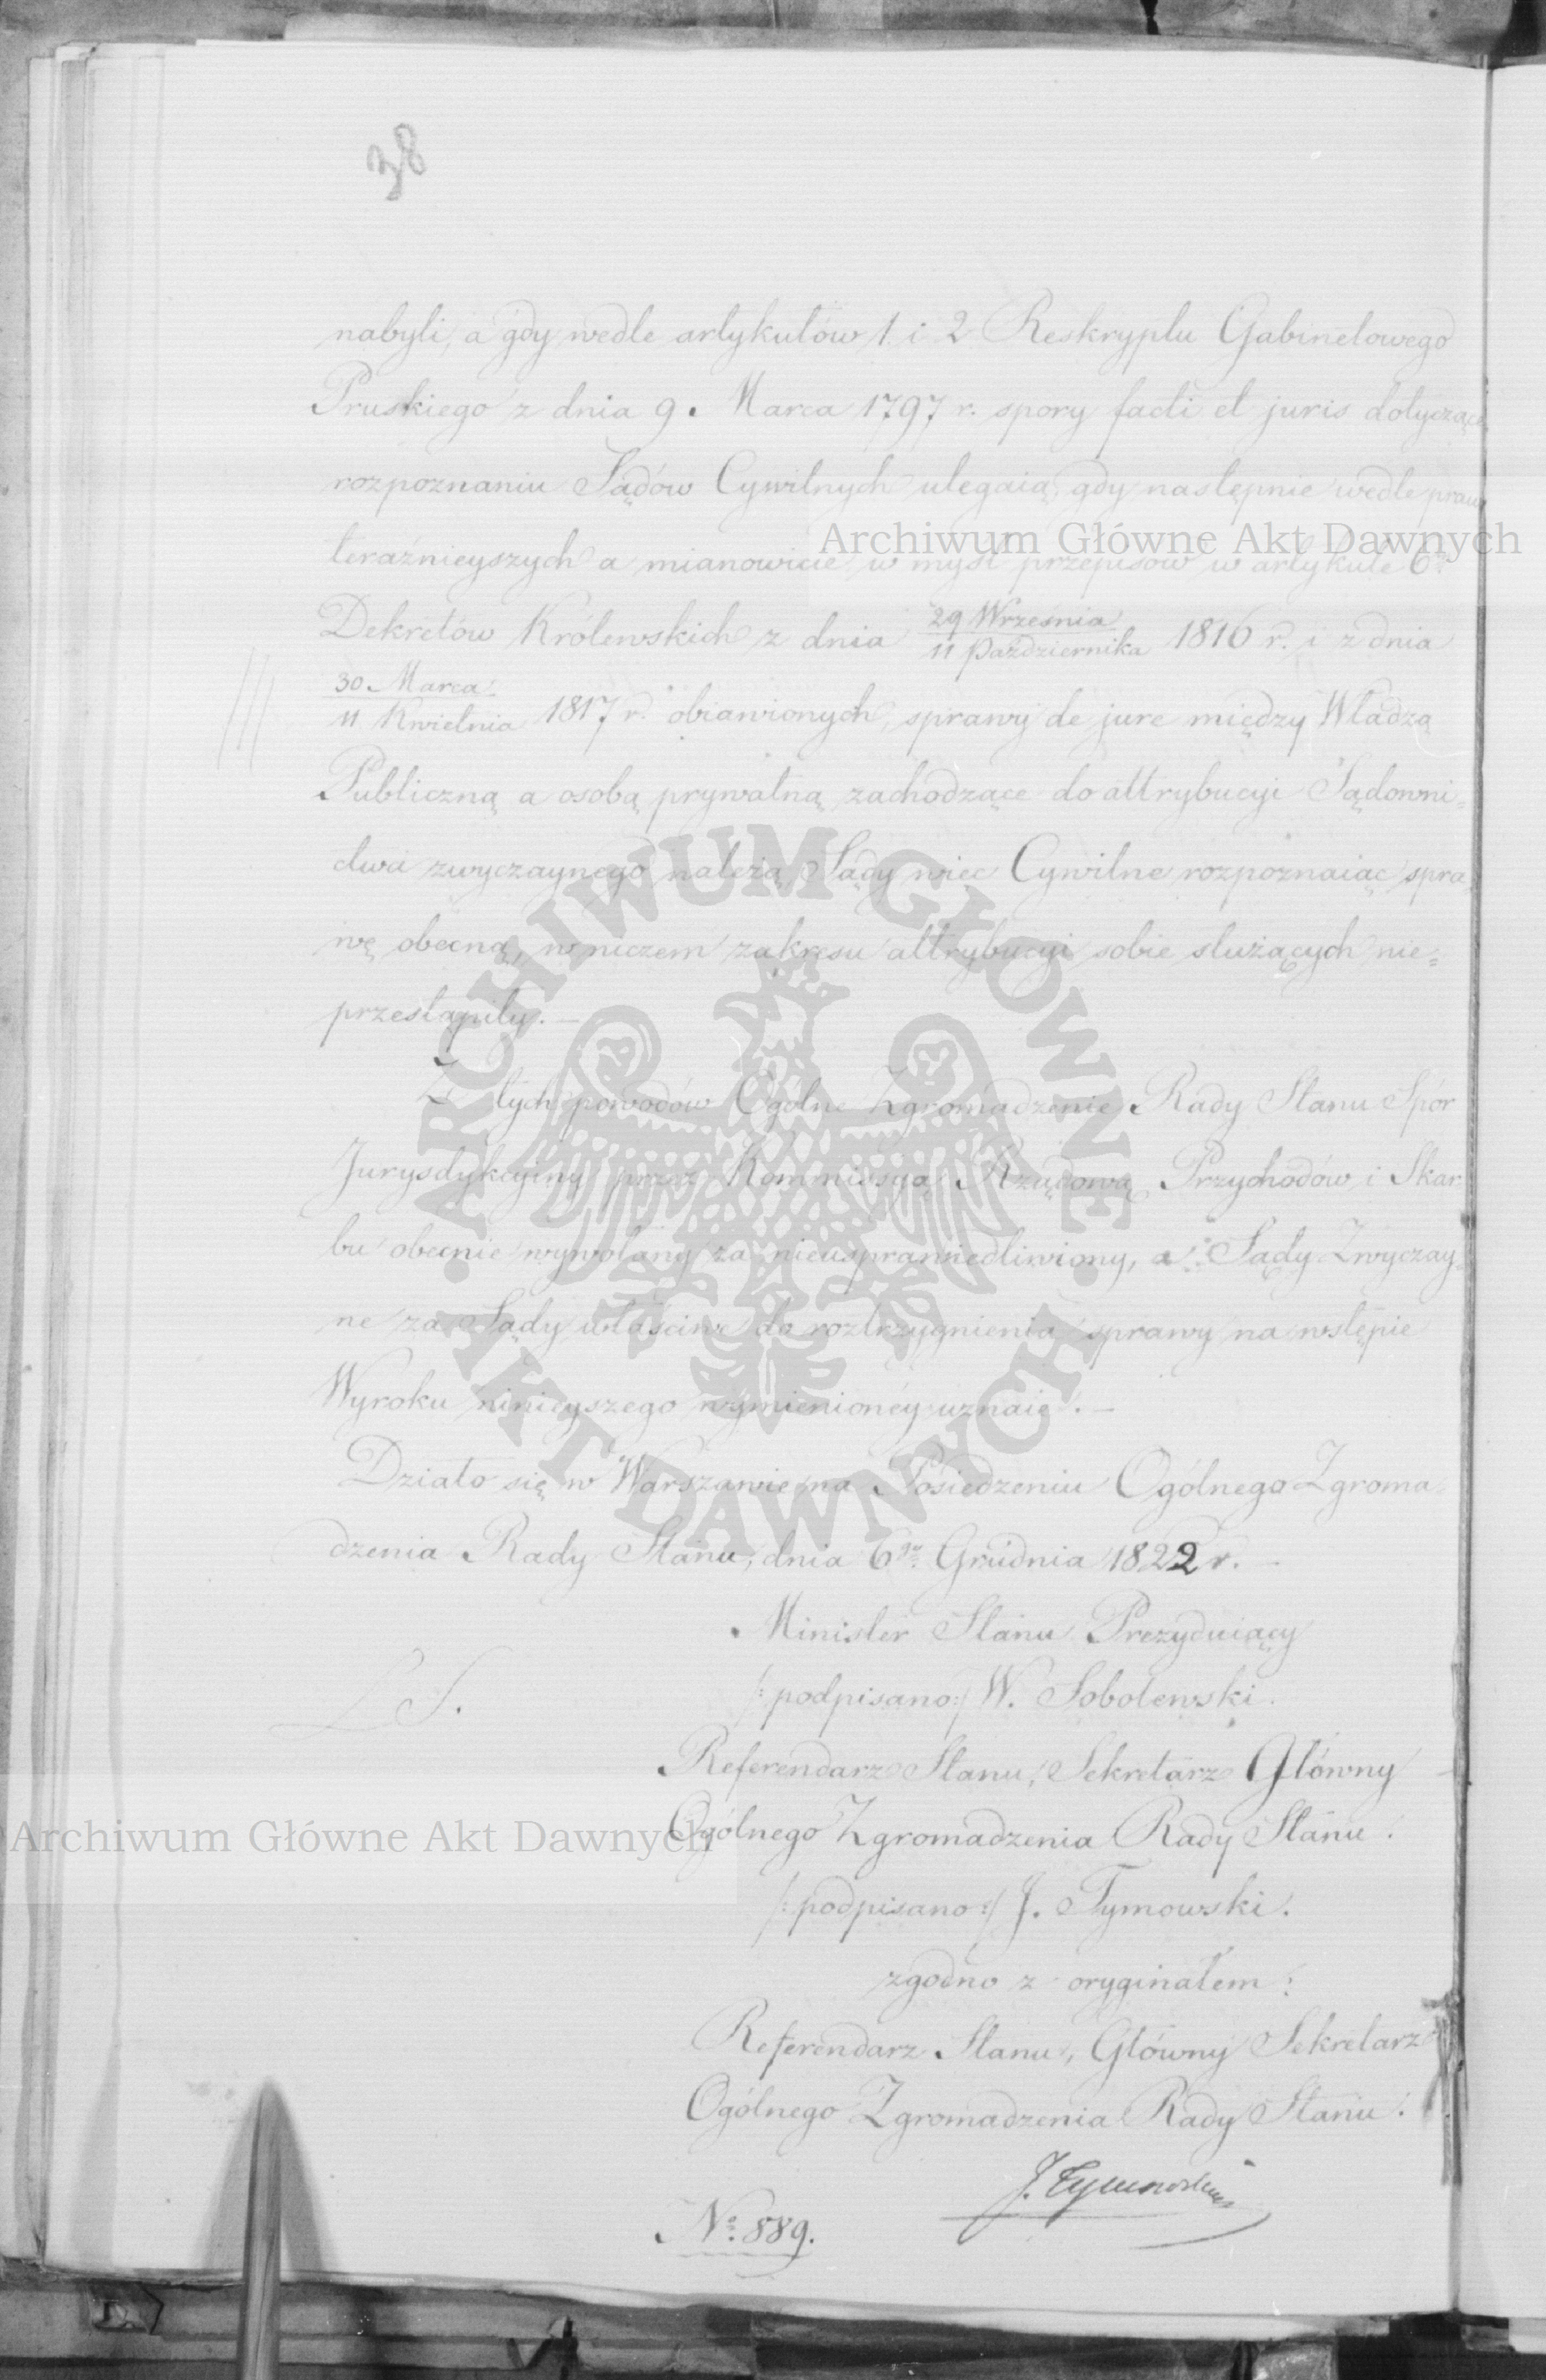 38
nabyli, a gdy wedle artykułów 1. i 2 Reskryptu Gabinetowego
Pruskiego z dnia 9. Marca 1797 r. spory facti et juris dotyczące
rozpoznaniu Sądów Cywilnych ulegaią, gdy następnie wedle praw
Archiwum Główne Akt Dawnych
teraźnieyszych a mianowicie w myśl przepisów w artykule 6
Dekretów Królewskich z dnia 29 Września / 11 Października 1816 r. i z dnia
30. Marca / 11 Kwietnia 1817 r. obiawionych, sprawy de jure między Władzą
Publiczną a osobą prywatną zachodzące do attrybucyi Sądowni=
ctwa zwyczaynego należą, Sądy więc Cywilne rozpoznaiąc spra
wę obecną, w niczem zakresu attrybucyi sobie służących nie=
przestąpiły. —
Z tych powodów Ogólne Zgromadzenie Rady Stanu Spór
Jurysdykcyiny przez Kommissyą Rządową Przychodów i Skar
bu obecnie wywołany za nieusprawiedliwiony, a Sądy Zwyczay=
ne za Sądy właściwe do roztrzygnienia sprawy na wstępie
Wyroku ninieyszego wymienionéy uznaie. —
Działo się w Warszawie na Posiedzeniu Ogólnego Zgroma=
dzenia Rady Stanu, dnia 6go Grudnia 1822 r. —
Minister Stanu Prezyduiący
L S.
/: podpisano :/ W. Sobolewski.
Referendarz Stanu, Sekretarz Główny
Ogólnego Zgromadzenia Rady Stanu.
Archiwum Główne Akt Dawnych
/: podpisano :/ J. Tymowski.
zgodno z oryginałem:
Referendarz Stanu, Główny Sekretarz
Ogólnego Zgromadzenia Rady Stanu.
J. Tymowski
No. 889.
ARCHIWUM GŁÓWNE
AKT DAWNYCH